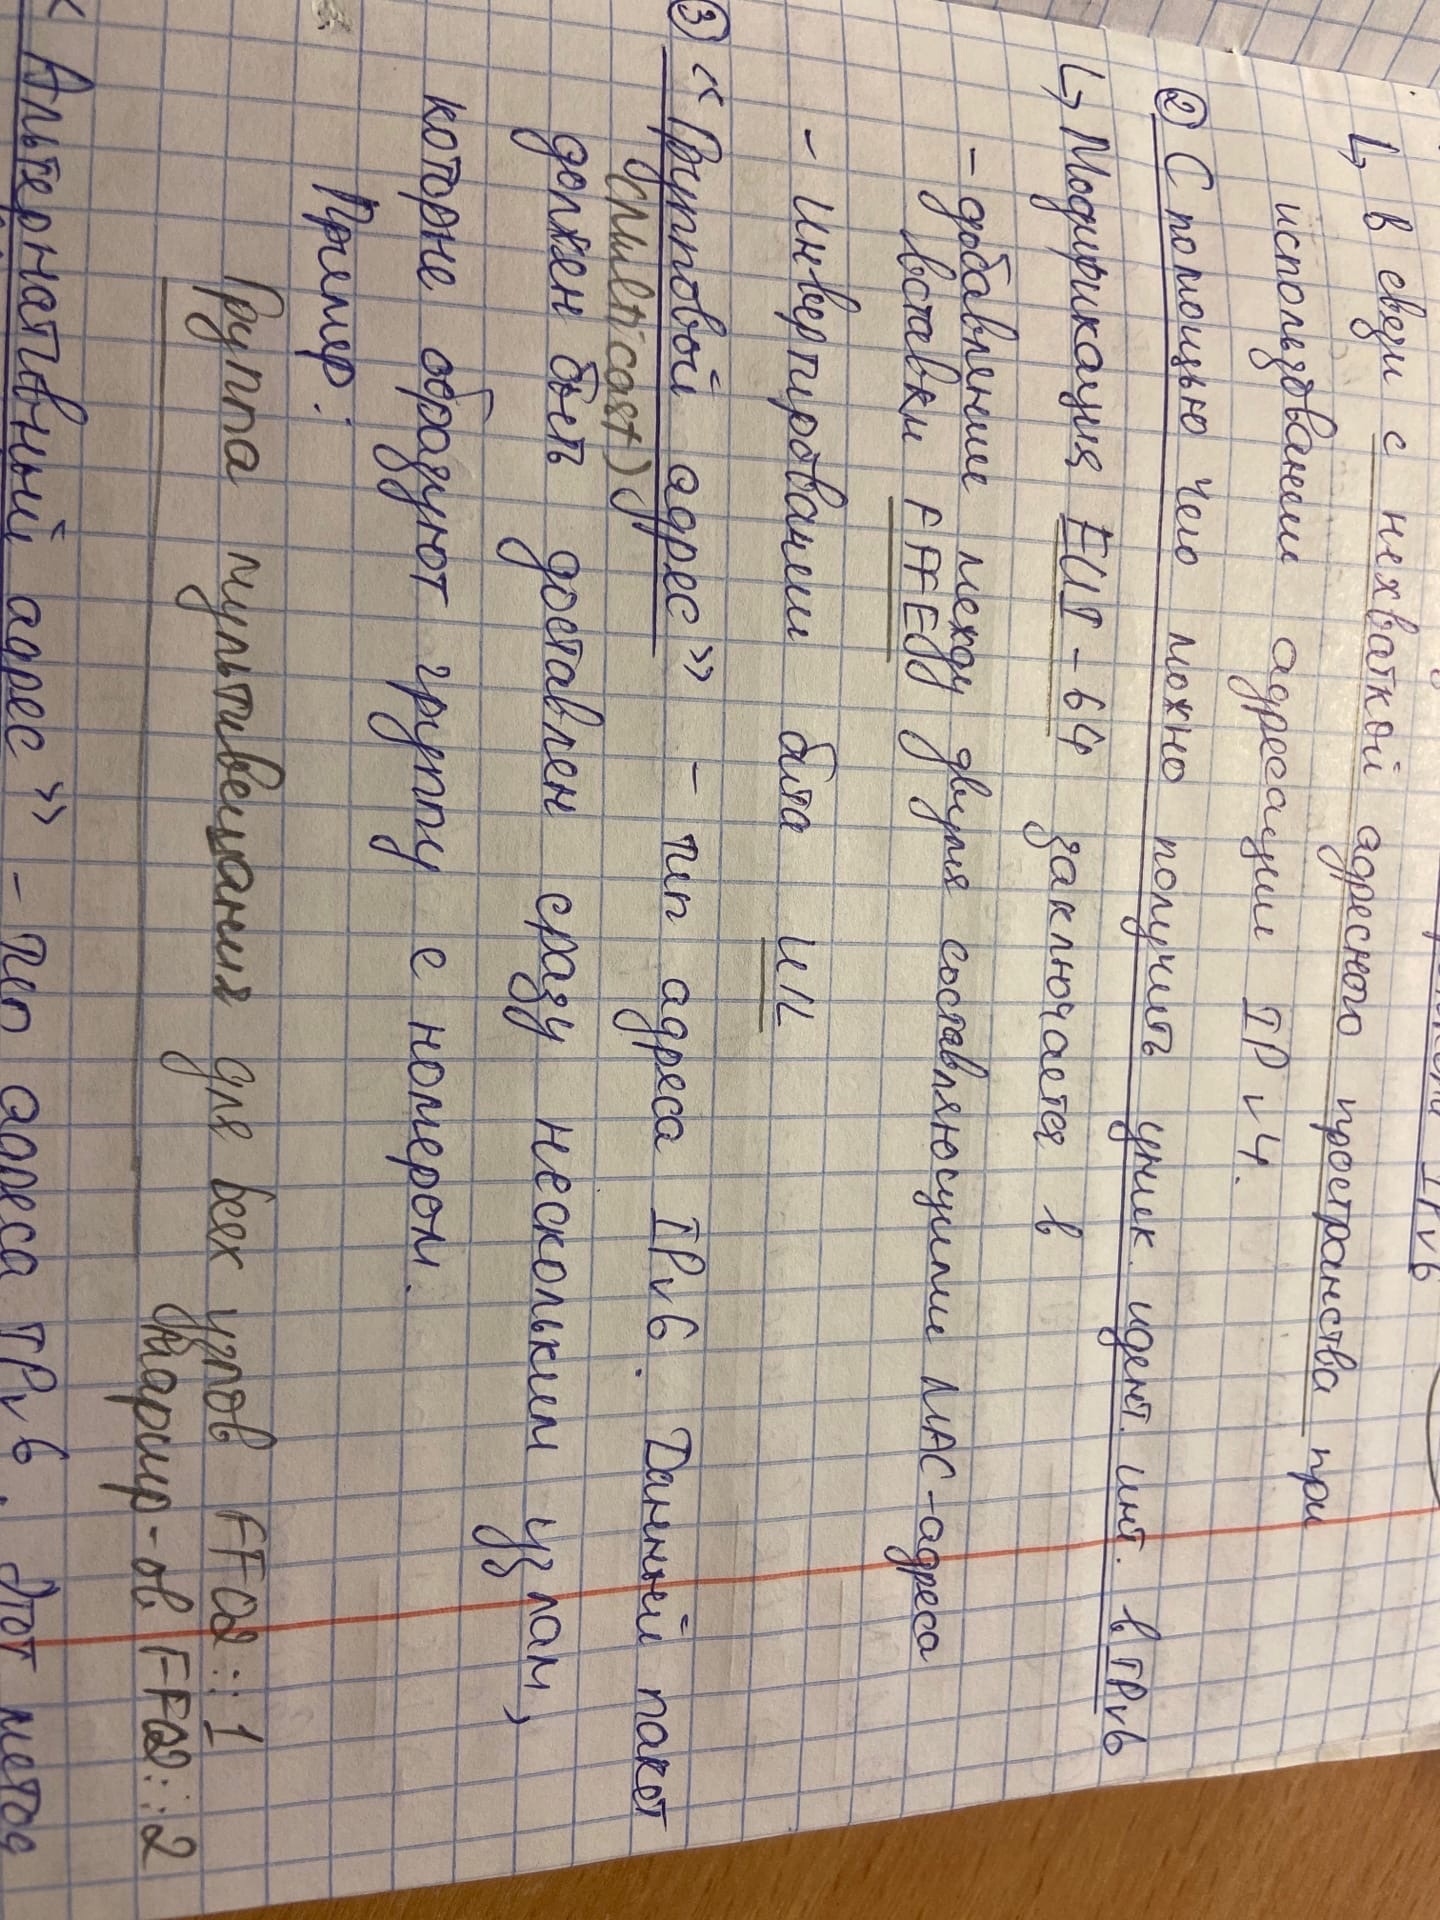 IPv6
↳ В связи с нехваткой адресного пространства при
использовании адресации IPv4.
② С помощью чего можно получить уник. идент. инт. в IPv6
↳ Модификация EUI-64 заключается в
- добавлении между двумя составляющими MAC-адреса
вставки FFFE
- Инвертировании бита U/L
③ «Групповой адрес» - тип адреса IPv6. Данный пакет
(Multicast)
должен быть доставлен сразу нескольким узлам,
которые образуют группу с номером.
Пример:
Группа мультивещания для всех узлов FF02::1
маршр-ов FF02::2
«Альтернативный адрес» - тип адреса IPv6. Этот